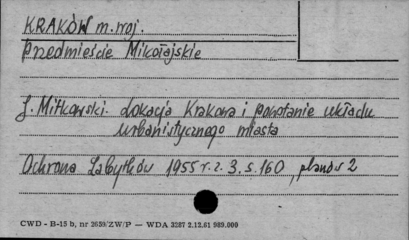 KRAKÓW m. woj.
Przedmieście Mikołajskie
J. Mitkowski. Lokacja Krakowa i powstanie układu
urbanistycznego miasta
Ochrona Zabytków 1955 r. z. 3, s. 160, planów 2
CWD - B-15 b, nr 2659/ZW/P — WDA 3287 2.12.61 989.000